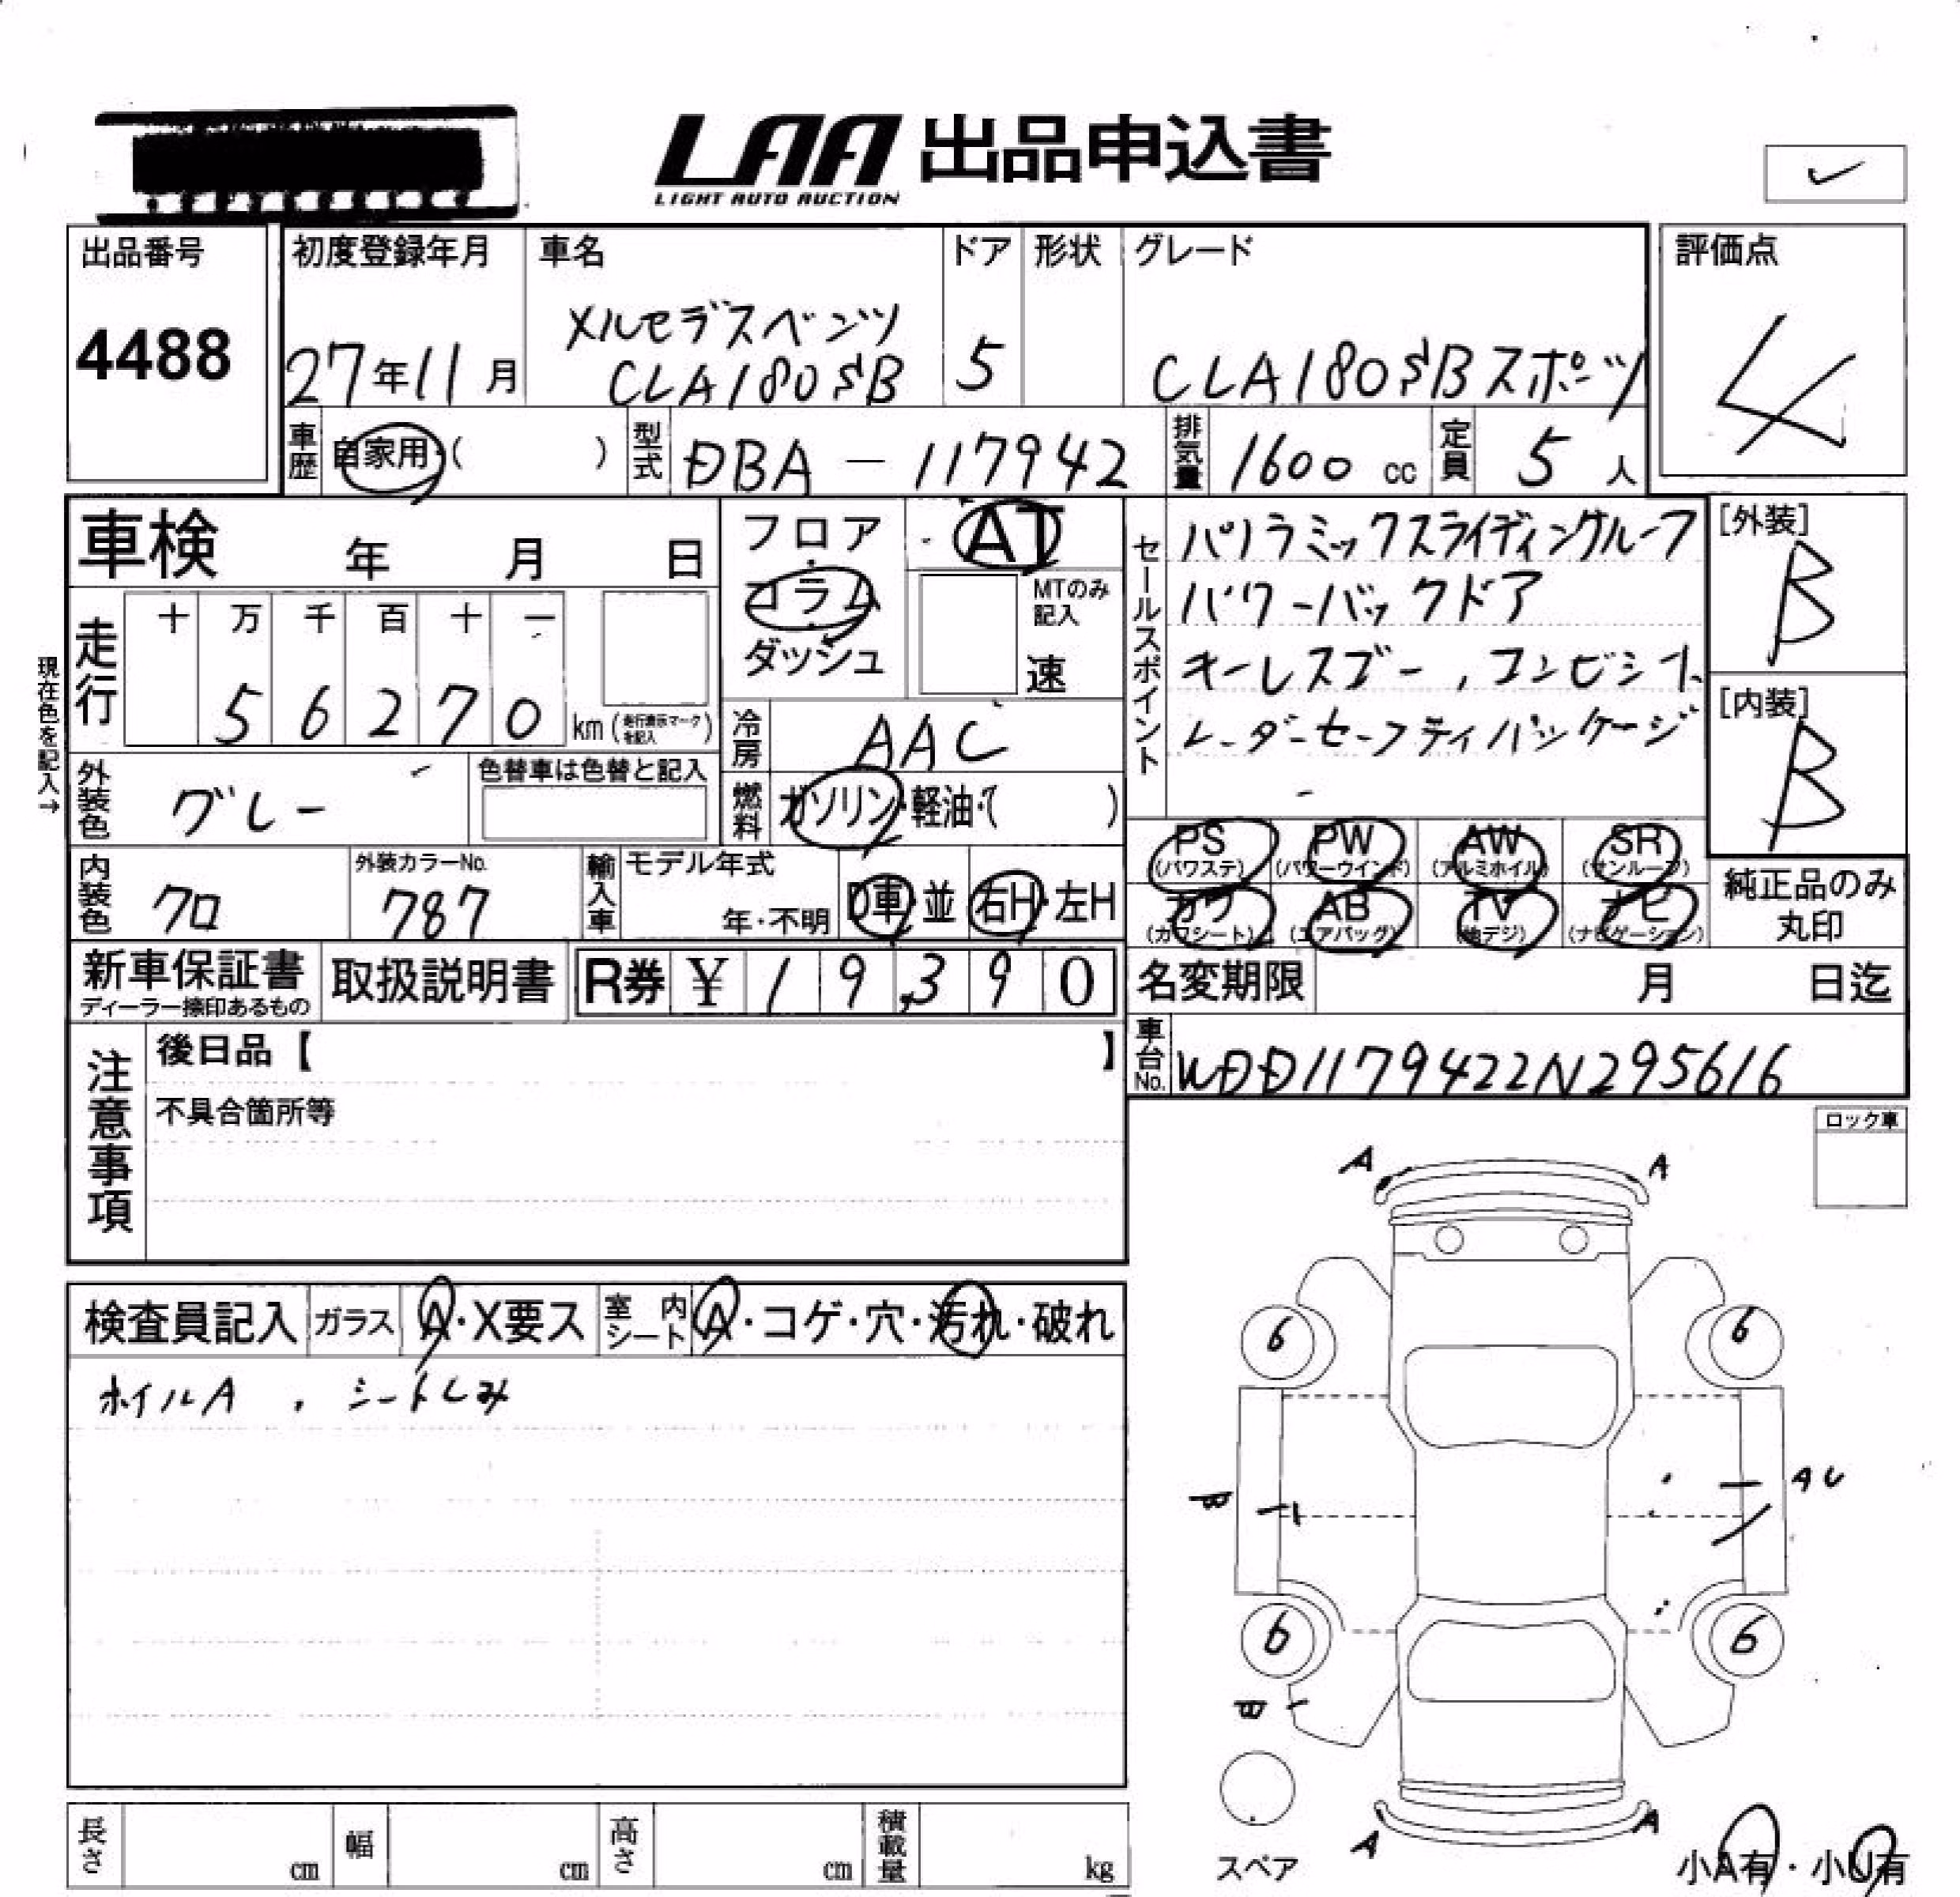 LAA 出品申込書
LIGHT AUTO AUCTION
出品番号
4488
初度登録年月
27年11月
車名
メルセデスベンツ
CLA180SB
ドア
5
形状
グレード
CLA180SBスポーツ
評価点
4
車歴 自家用・( )
型式 DBA-117942
排気量 1600 cc
定員 5 人
車検 年 月 日
フロア
コラム
ダッシュ
AT
MTのみ記入
速
セールスポイント
パノラミックスライディングルーフ
パワーバックドア
キーレスゴー, コンビシート
レーダーセーフティパッケージ
[外装]
B
[内装]
B
現在色を記入→
走行
十 万 千 百 十 一
5 6 2 7 0 km (走行表示マークを記入)
冷房 AAC
燃料 ガソリン・軽油・( )
外装色 グレー
色替車は色替と記入
内装色 クロ
外装カラーNo.
787
輸入車
モデル年式
年・不明
D車・並
右H・左H
PS (パワステ) PW (パワーウインド) AW (アルミホイル) SR (サンルーフ)
カワ (カワシート) AB (エアバッグ) TV (地デジ) ナビ (ナビゲーション)
純正品のみ
丸印
新車保証書
ディーラー捺印あるもの
取扱説明書
R券 ¥ 19,390
名変期限 月 日迄
車台No. WDD1179422N295616
注意事項
後日品【 】
不具合箇所等
ロック車
検査員記入 ガラス A・X要ス 室内シート A・コゲ・穴・汚れ・破れ
ホイルA , シートしみ
A A
6 6
B A U
6 6
B
スペア
A A
小A有・小U有
長さ cm 幅 cm 高さ cm 積載量 kg